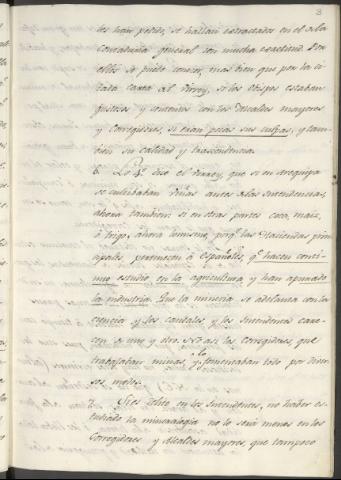 3
les han pedido, se hallan extractados en el de la
Contaduria general con mucha exactitud. Por
ellos se pudo conocer, mas bien que por la ci-
tada carta al Virrey, si los Obispos estaban
justos y contentos con los Alcaldes mayores
y Corregidores, si eran pocas sus culpas, y tam-
bien su calidad y trascendencia.
6. Lo 4º dice el Virrey, que si en Arequipa
se cultivaban Viñas antes de las Intendencias,
ahora tambien: si en otras partes coca, maiz,
ó trigo, ahora lo mismo, porq.e las Haciendas prin-
cipales pertenecen á Españoles, q.e hacen conti-
nuo estudio en la agricultura, y han apurado
la industria. Que la mineria se adelanta con la
ciencia y los caudales, y los Intendentes care-
cen de uno y otro. No asi los Corregidores que
trabajaban minas, y ó las fomentaban todo por diver-
sos modos.
7. Si es delito en los Intendentes, no haber es-
tudiado la mineralogia no lo será menos en los
Corregidores y Alcaldes mayores, que tampoco